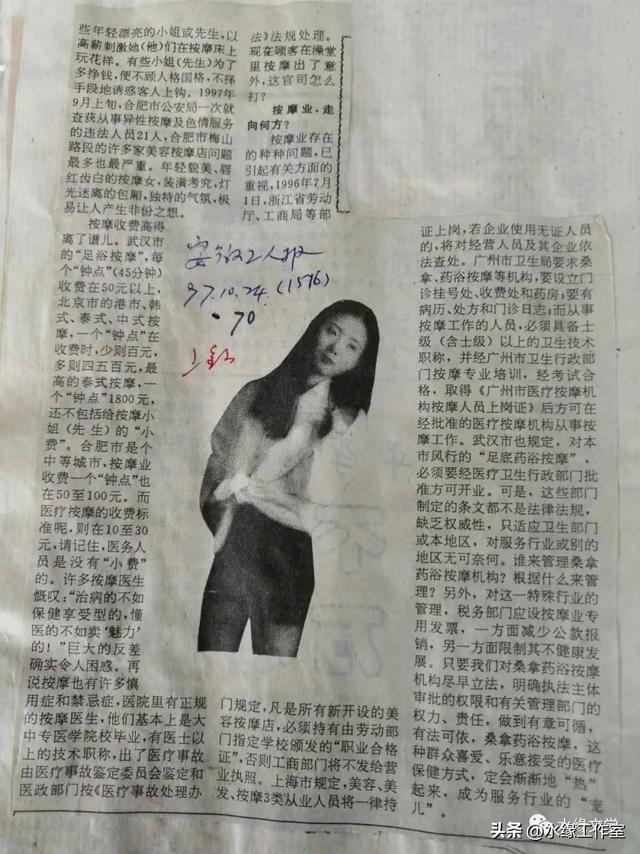 些年轻漂亮的小姐或先生，以
高薪刺激她(他)们在按摩床上
玩花样。有些小姐(先生)为了
多挣钱，便不顾人格国格，不择
手段地诱惑客人上钩。1997年
9月上旬，合肥市公安局一次就
查获从事异性按摩及色情服务
的违法人员21人，合肥市梅山
路段的许多家美容按摩店问题
最多也最严重。年轻貌美、唇
红齿白的按摩女，装潢考究，灯
光迷离的包厢，独特的气氛，极
易让人产生非份之想。
按摩收费高得
离了谱儿。武汉市
的“足浴按摩”，每
个“钟点”(45分钟)
收费在50元以上，
北京市的港市、韩
式、泰式、中式按
摩，一个“钟点”在
收费时，少则百元，
多则四五百元，最
高的泰式按摩，一
个“钟点”1800元，
还不包括给按摩小
姐(先生)的“小
费”。合肥市是个
中等城市，按摩业
收费一个“钟点”也
在50至100元。而
医疗按摩的收费标
准呢，则在10至30
元，请记住，医务人
员是没有“小费”
的。许多按摩医生
慨叹：“治病的不如
保健享受型的，懂
医的不如卖‘魅力’
的！”巨大的反差
确实令人困惑。再
说按摩也有许多慎
用症和禁忌症，医院里有正规
的按摩医生，他们基本上是大
中专医学院校毕业，有医士以
上的技术职称，出了医疗事故
由医疗事故鉴定委员会鉴定和
医政部门按《医疗事故处理办
法》法规处理。
现在顾客在澡堂
里按摩出了意
外，这官司怎么
打？
按摩业，走
向何方？
按摩业存在
的种种问题，已
引起有关方面的
重视，1996年7月
1日，浙江省劳动
厅、工商局等部
安徽工人报
97.10.24.(1576)
·70
门规定，凡是所有新开设的美
容按摩店，必须持有由劳动部
门指定学校颁发的“职业合格
证”，否则工商部门将不发给营
业执照。上海市规定，美容、美
发、按摩3类从业人员将一律持
证上岗，若企业使用无证人员
的，将对经营人员及其企业依
法查处。广州市卫生局要求桑
拿、药浴按摩等机构，要设立门
诊挂号处、收费处和药房；要有
病历、处方和门诊日志；而从事
按摩工作的人员，必须具备士
级（含士级）以上的卫生技术
职称，并经广州市卫生行政部
门按摩专业培训，经考试合
格，取得《广州市医疗按摩机
构按摩人员上岗证》后方可在
经批准的医疗按摩机构从事按
摩工作。武汉市也规定，对本
市风行的“足底药浴按摩”，
必须要经医疗卫生行政部门批
准方可开业。可是，这些部门
制定的条文都不是法律法规，
缺乏权威性，只适应卫生部门
或本地区，对服务行业或别的
地区无可奈何。谁来管理桑拿
药浴按摩机构？根据什么来管
理？另外，对这一特殊行业的
管理，税务部门应设按摩业专
用发票，一方面减少公款报
销，另一方面限制其不健康发
展。只要我们对桑拿药浴按摩
机构尽早立法，明确执法主体
审批的权限和有关管理部门的
权力、责任，做到有章可循，
有法可依，桑拿药浴按摩，这
种群众喜爱、乐意接受的医疗
保健方式，定会渐渐地“热”
起来，成为服务行业的“宠
儿”。
水缘文学
头条@水缘工作室